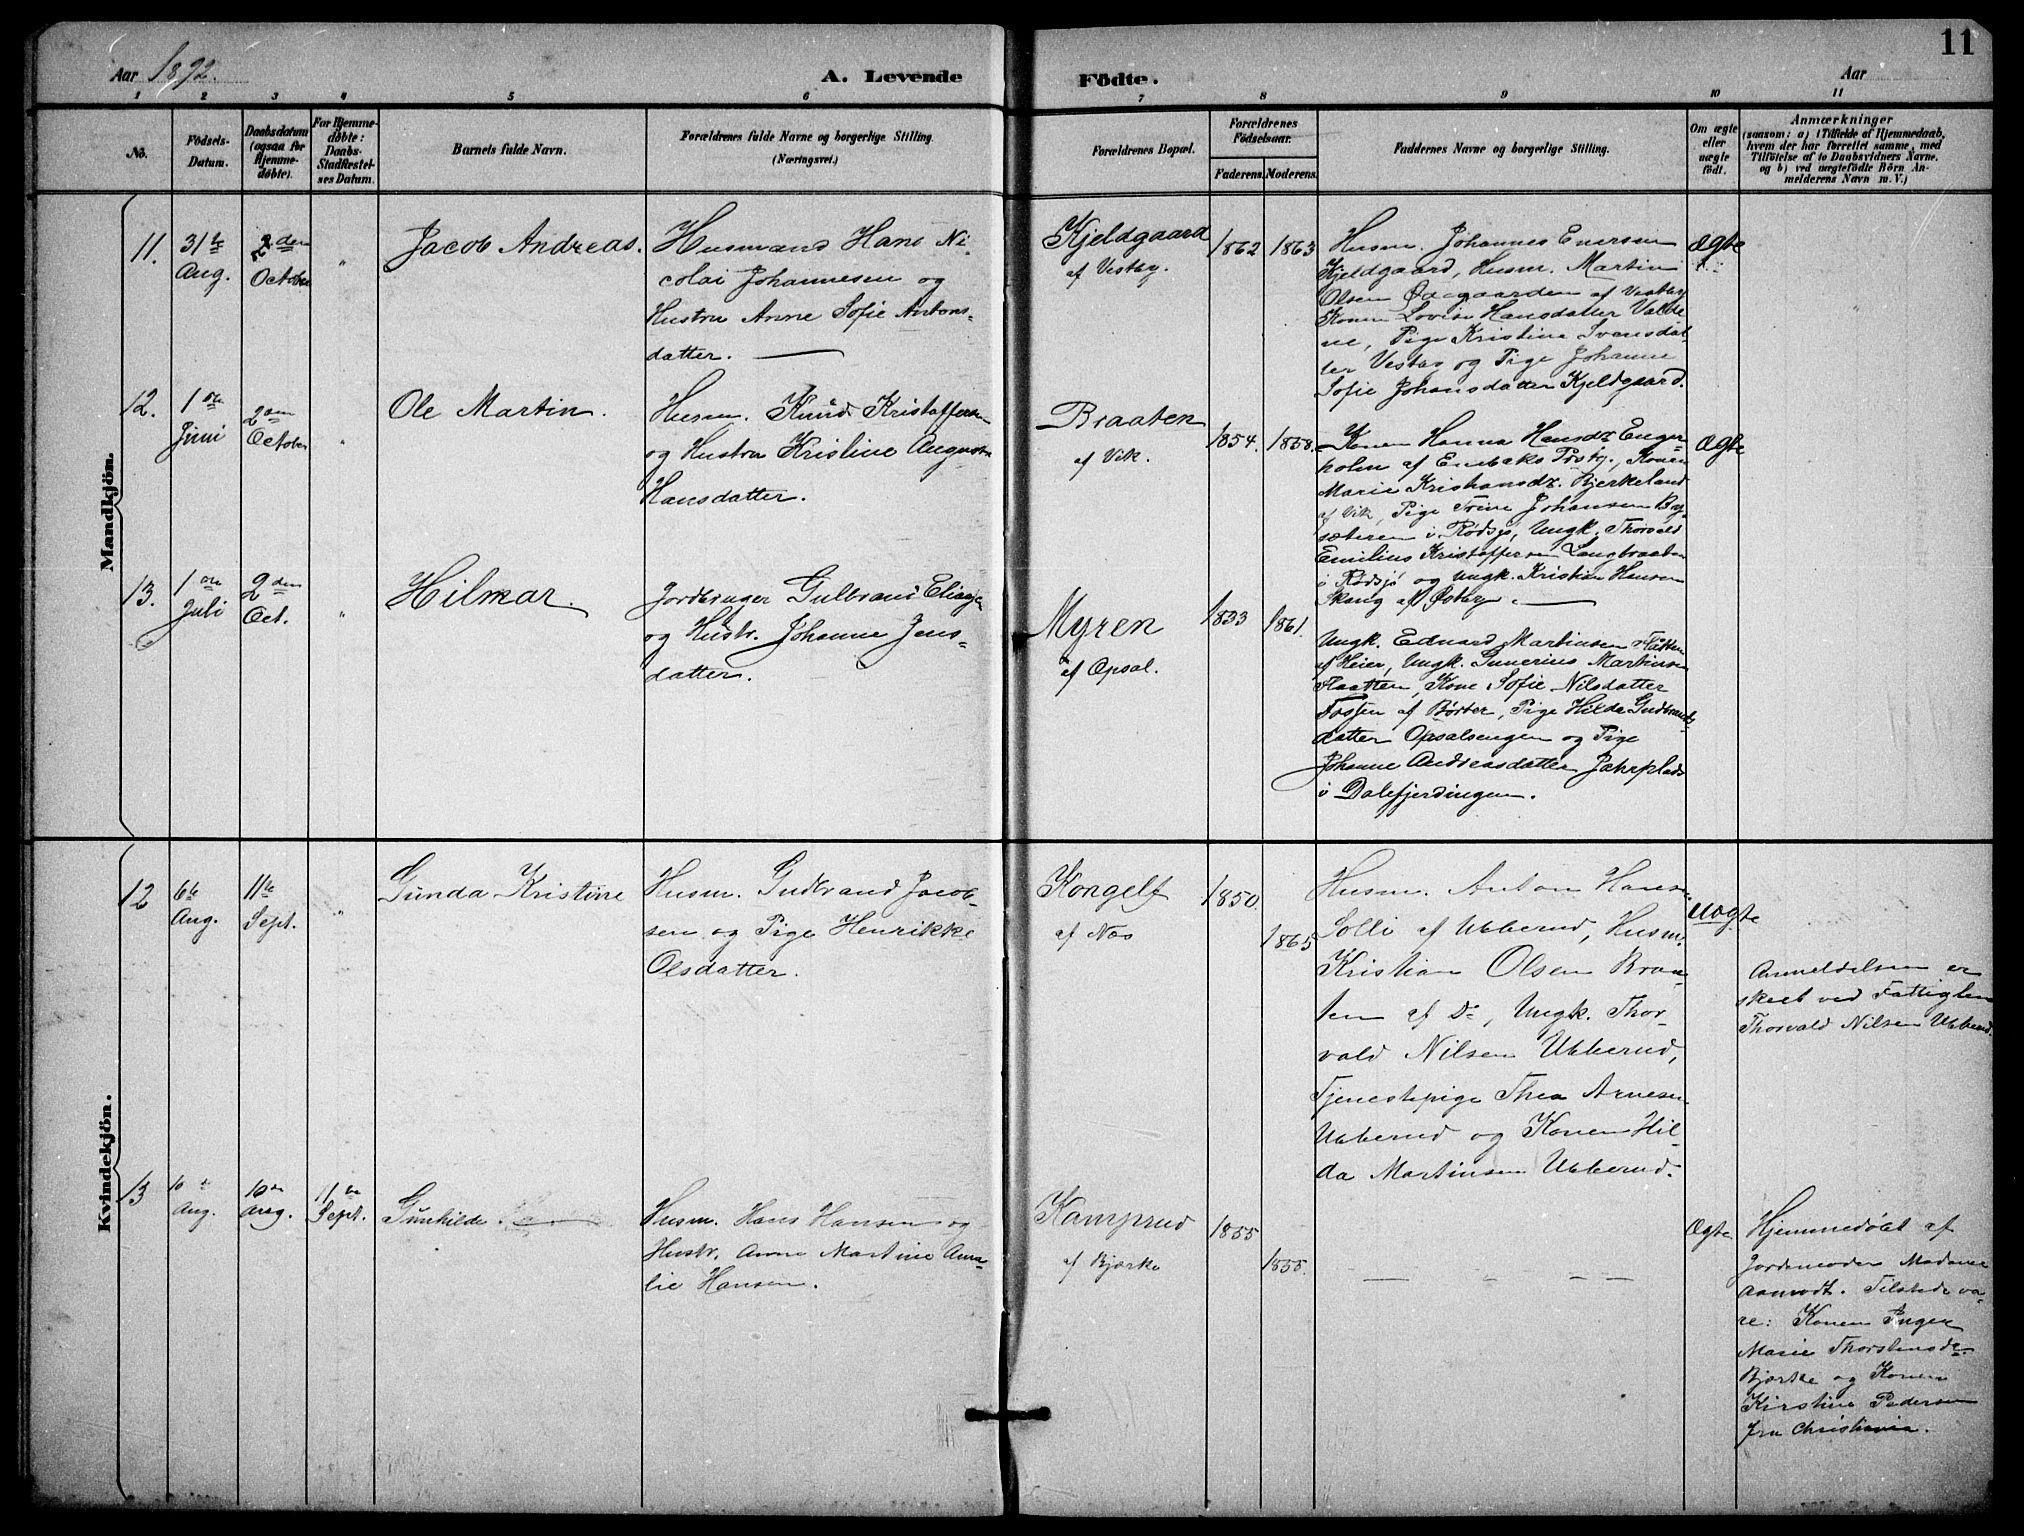 11
Aar 1892.
A. Levende
Födte.
Aar
1 2 3 4 5 6 7 8 9 10 11
No.
Födsels-
Datum.
Daabsdatum
(ogsaa for
Hjemme-
döbte).
For Hjemme-
döbte:
Daabs-
Stadfæstel-
ses Datum.
Barnets fulde Navn.
Forældrenes fulde Navne og borgerlige Stilling.
(Næringsvei.)
Forældrenes Bopæl.
Forældrenes
Födselsaar.
Faderens. Moderens.
Faddernes Navne og borgerlige Stilling.
Om ægte
eller
uægte
född.
Anmærkninger
(saasom: a) i Tilfælde af Hjemmedaab,
hvem der har forrettet samme, med
Tilföielse af to Daabsvidners Navne.
og b) ved uægtefödte Börn An-
melderens Navn m. V.)
Mandkjön.
11.
31te
Aug.
2den
October
"
Jacob Andreas.
Husmand Hans Ni-
colai Johannesen og
Hustru Anne Sofie Antons-
datter.
Kjeldgaard
af Vestby.
1862
1863
Husm. Johannes Enersen
Kjeldgaard, Husm. Martin
Olsen Ødegaarden af Vestby
Konen Lovise Hansdatter Valde
ne, Pige Kristine Svensdat-
ter Vestby og Pige Johanne
Sofie Johansdatter Kjeldgaard.
Ægte
12.
1ste
Juni
2den
October
"
Ole Martin.
Husm. Knud Kristoffersen
og Hustru Kristine Augusta
Hansdatter.
Braaten
af Vik.
1854.
1858.
Konen Hanna Hansdr Enger-
holm af Enebaks Prstg., Konen
Marie Kristiansdr. Bjerkeland
af Vik, Pige Trine Johansen By-
sæteren i Rødsjø, Ungk. Thorvald
Emilius Kristoffersen Langbraaten
i Rødsjø og Ungk. Kristian Hansen
Skaug af Østby.
Ægte
13.
1ste
Juli
2den
Oct.
"
Hilmar.
Jordbruger Gulbrand Eliasen
og Hustr. Johanne Jens-
datter.
Myren
af Opsal.
1833
1861.
Ungk. Eduard Martinsen Flatten
af Heier, Ungk. Gunerius Martinsen
Flaatten, Kone Sofie Nilsdatter
Fossen af Børter, Pige Hilda Gudbrands-
datter Opsalsengen og Pige
Johanne Andreasdatter Jahrplads
i Dalefjerdingen.
Kvindekjön.
12
6te
Aug.
11te
Sept.
"
Gunda Kristine
Husm. Gudbrand Jacob-
sen og Pige Henrikke
Olsdatter.
Kongelf
af Næs
1850.
1865
Husm. Anton Hans.
Solli af Ubberud, Husm.
Kristian Olsen Braa-
ten af Do, Ungk. Thor-
vald Nilsen Ubberud,
Tjenestepige Thea Arnesen
Ubberud og Konen Hil-
da Martinsen Ubberud.
Uægte
Anmeldelsen er
skeet ved Fattiglem
Thorvald Nilsen Ubberud.
13
10de
Aug.
10de
Aug.
11te
Sept.
Gunhilde.
Husm. Hans Hansen og
Hustr. Anne Martine Ama-
lie Hansen.
Kamprud
af Bjørke
1855
1855.
— " — —
Ægte
Hjemmedøbt af
Jordemoder Madame
Aamodt. Tilstede va-
re: Konen Inger
Marie Thorstensdr.
Bjørke og Konen
Kirstine Pedersen
fra Christiania.